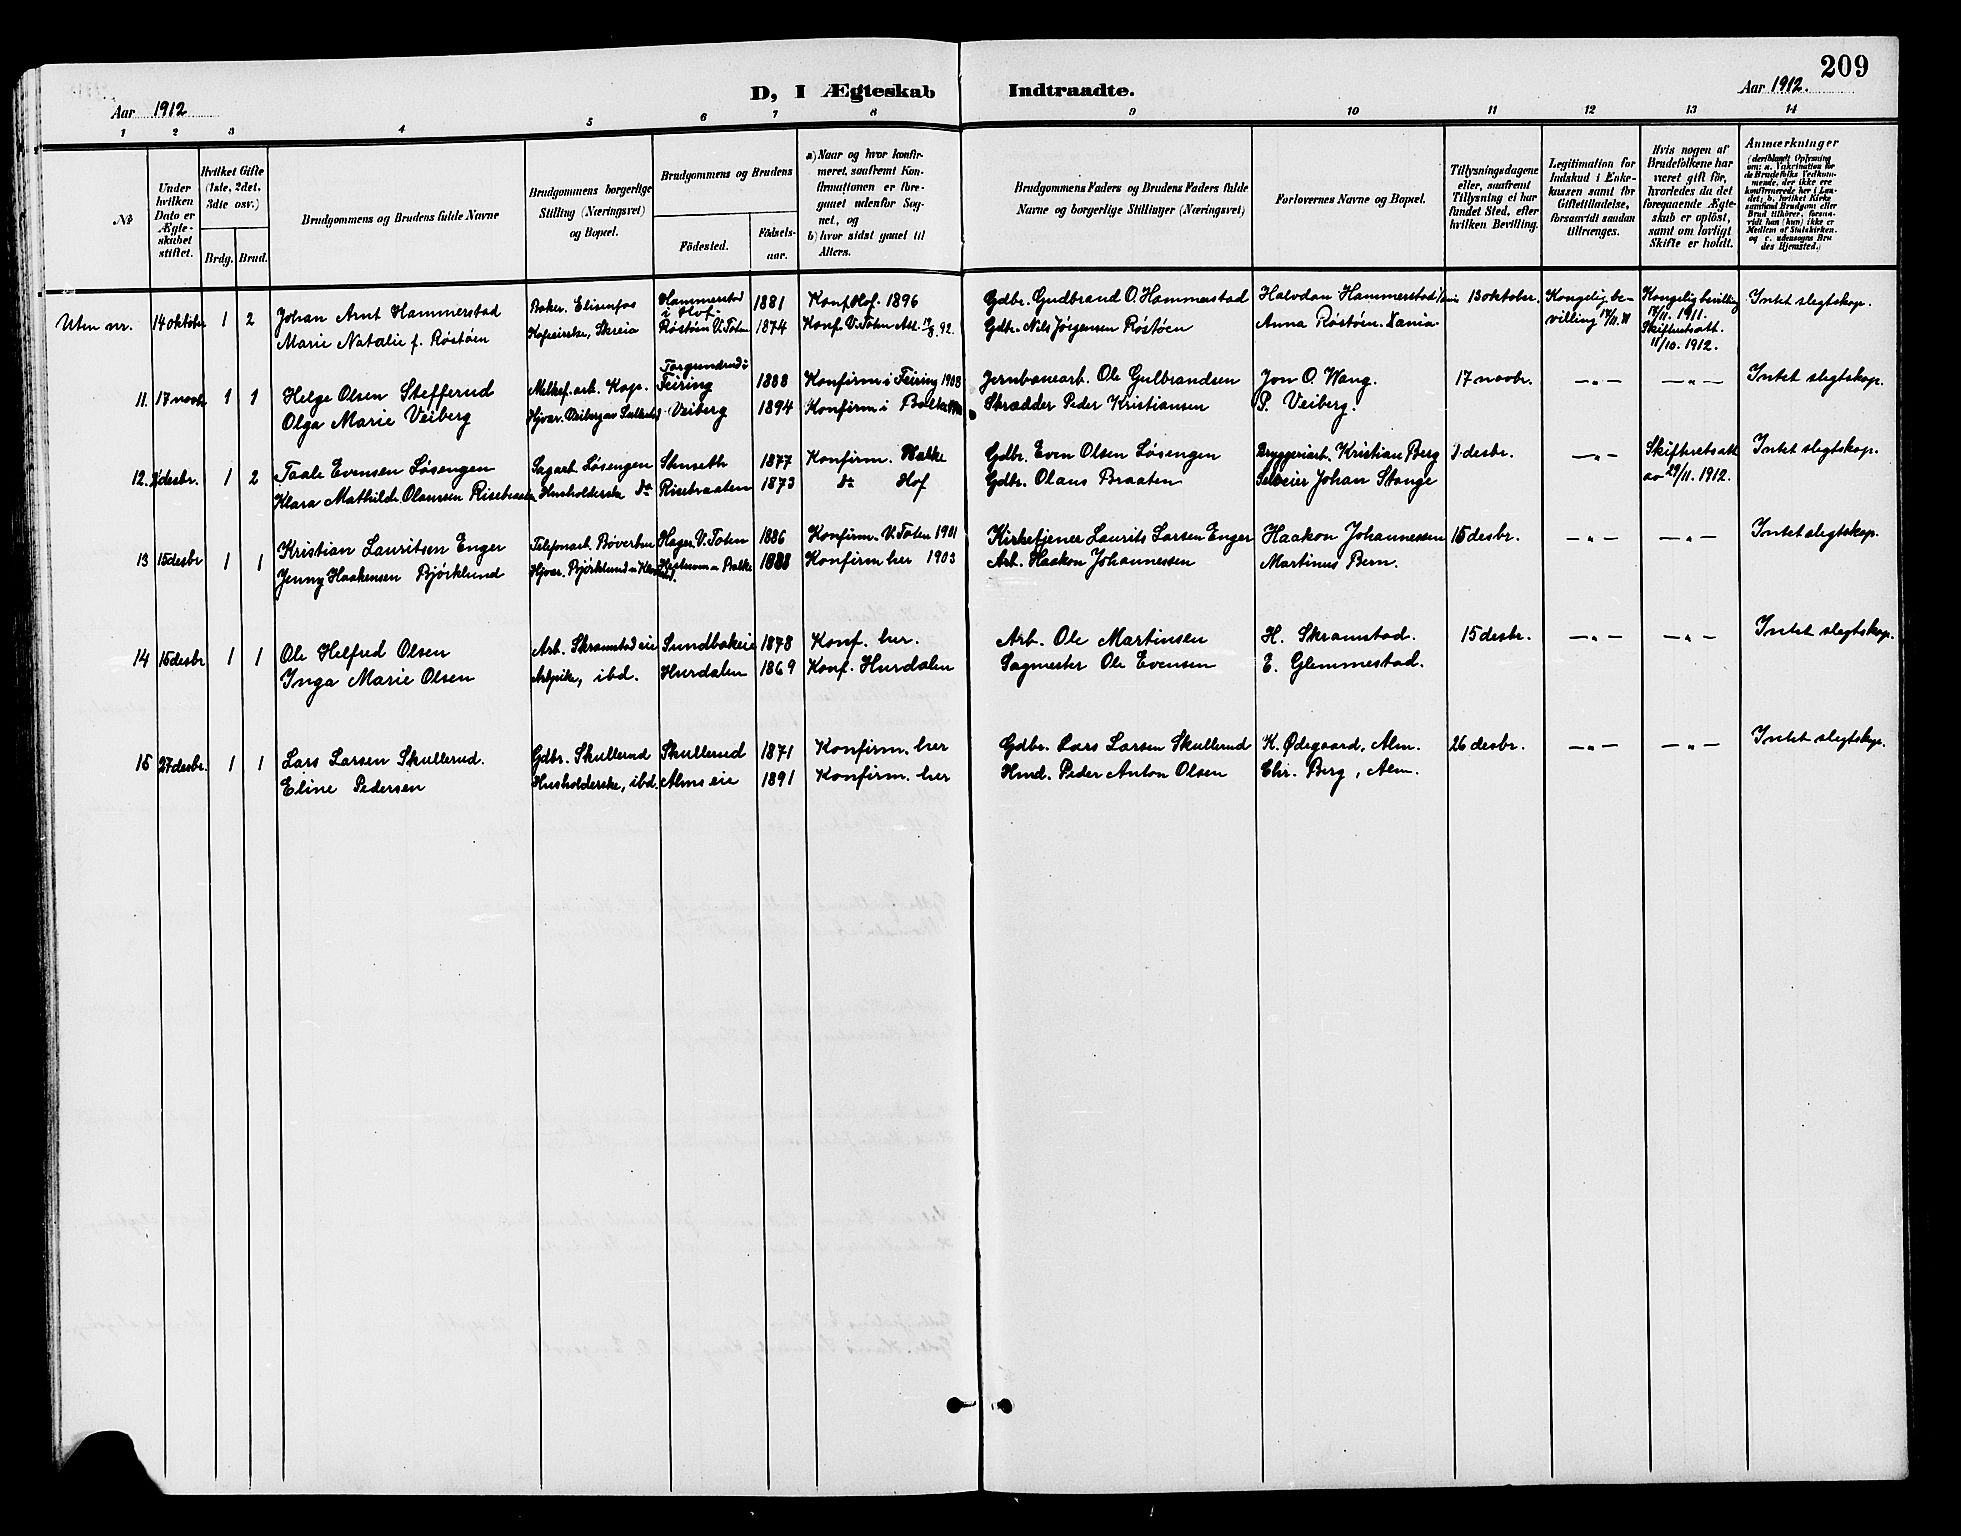 209
D, I Ægteskab Indtraadte.
Aar 1912
Aar 1912.
1 2 3 4 5 6 7 8 9 10 11 12 13 14
№
Under hvilken Dato er Ægteskabet stiftet.
Hvilket Gifte (1ste, 2det, 3die osv.)
Brdg. Brud.
Brudgommens og Brudens fulde Navne
Brudgommens borgerlige Stilling (Næringsvei) og Bopæl.
Brudgommens og Brudens
Födested.
Födselsaar.
a) Naar og hvor konfirmeret, saafremt Konfirmationen er foregaaet udenfor Sognet, og
b) hvor sidst gaaet til Alters.
Brudgommens Faders og Brudens Faders fulde Navne og borgerlige Stillinger (Næringsvei)
Forlovernes Navne og Bopæl.
Tillysningsdagene eller, saafremt Tillysning ei har fundet Sted, efter hvilken Bevilling.
Legitimation for Indskud i Enkekassen samt for Giftetilladelse, forsaavidt saadan tiltrænges.
Hvis nogen af Brudefolkene har været gift før, hvorledes da det foregaaende Ægteskab er opløst, samt om lovligt Skifte er holdt.
Anmærkninger
(deriblandt Oplysning om: a. Vakcination for de Brudefolks Vedkommende, der ikke ere konfirmerede her i Landet; b. hvilket Kirkesamfund Brudgom eller Brud tilhører, forsaavidt han (hun) ikke er Medlem af Statskirken. og c. udensogns Brudes Hjemsted.)
Uten nr. 14 oktober 1 2 Johan Arnt Hammerstad Baker. Elisenfos Hammerstad i Hof. 1881 Konf. Hof. 1896 Gdbr. Gudbrand O. Hammerstad Halvdan Hammerstad 13 oktober. Kongelig bevilling Kongelig bevilling Intet slegtskap.
Marie Natalie f. Røstøen Skreia Røstøen V. Toten 1874 Konf. V. Toten Gdbr. Nils Jørgensen Røstøen Anna Røstøen. 1911. Skifteretsatt. 11/10. 1912.
11. 17 novbr 1 1 Helge Olsen Stefferud Melkef. arb. Kap. Feiring 1888 Konfirm i Feiring 1903 Jernbanearb. Ole Gulbrandsen Jon O. Wang. 17 novbr. — „ — — „ — Intet slegtskap.
Olga Marie Veiberg Veiberg 1894 Konfirm i Balke Skrædder Peder Kristiansen P. Veiberg.
12. desbr. 1 2 Taale Evensen Løsengen Sagarb. Løsengen Stenseth 1877 Konfirm. Balke Gdbr. Even Olsen Løsengen Bryggeriarb. Kristian Berg 1. desbr. — „ — Skifteretsatt. Intet slegtskap.
Klara Mathilde Olaussen Risebraaten Husholderske do Risebraaten 1873 do Hof Gdbr. Olaus Braaten Selveier Johan Stange av 29/11. 1912.
13 15 desbr 1 1 Kristian Lauritsen Enger Telefonarb. Bøverbru Hager. V. Toten 1886 Konfirm. V. Toten 1901 Kirketjener Laurits Larsen Enger Haakon Johannessen 15 desbr. — „ — — „ — Intet slegtskap.
Jenny Haakensen Bjørklund Hjvær. Bjørklund Balke 1888 Konfirm her 1903 Arb. Haakon Johannessen Martinus Bern.
14 15 desbr 1 1 Ole Helfred Olsen Arb. Skramstadeie Sundbakeie 1878 Konf. her. Arb. Ole Martinsen H. Skramstad. 15 desbr. — „ — — „ — Intet slegtskap.
Inga Marie Olsen Arbpike, ibd. Hurdalen 1869 Konf. Hurdalen Sagmester Ole Evensen E. Glemmestad.
15 27 desbr. 1 1 Lars Larsen Skullerud. Gdbr. Skullerud Skullerud 1871 Konfirm. her Gdbr. Lars Larsen Skullerud K. Ødegaard, Alm. 26 desbr. — „ — — „ — Intet slegtskap.
Eline Pedersen Husholderske, ibd. Alms eie 1891 Konfirm. her Hmd. Peder Anton Olsen Chr. Berg, Alm.